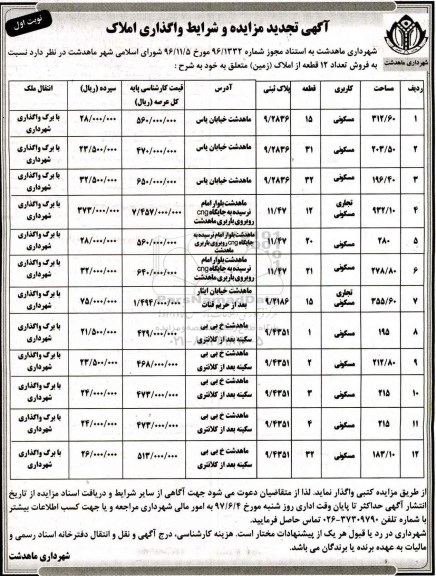 نوبت اول
آگهی تجدید مزایده و شرایط واگذاری املاک
شهرداری ماهدشت به استناد مجوز شماره ۹۶/۱۳۳۲ مورخ ۹۶/۱۱/۵ شورای اسلامی شهر ماهدشت در نظر دارد نسبت
به فروش تعداد ۱۲ قطعه از املاک (زمین) متعلق به خود به شرح :
ردیف مساحت کاربری قطعه پلاک ثبتی آدرس قیمت کارشناسی پایه کل عرصه (ریال) سپرده (ریال) انتقال ملک
۱ ۳۱۲/۶۰ مسکونی ۱۵ ۹/۲۸۳۶ ماهدشت خیابان یاس ۵۶۰/۰۰۰/۰۰۰ ۲۸/۰۰۰/۰۰۰ با برگ واگذاری شهرداری
۲ ۲۰۳/۵۰ مسکونی ۳۱ ۹/۲۸۳۶ ماهدشت خیابان یاس ۴۷۰/۰۰۰/۰۰۰ ۲۳/۵۰۰/۰۰۰ با برگ واگذاری شهرداری
۳ ۱۹۶/۴۰ مسکونی ۳۲ ۹/۲۸۳۶ ماهدشت خیابان یاس ۶۵۰/۰۰۰/۰۰۰ ۳۲/۵۰۰/۰۰۰ با برگ واگذاری شهرداری
۴ ۹۳۲/۱۰ تجاری مسکونی ۱۲ ۱۱/۴۷ ماهدشت بلوار امام نرسیده به جایگاه cng روبروی باربری ماهدشت ۷/۴۵۷/۰۰۰/۰۰۰ ۳۷۳/۰۰۰/۰۰۰ با برگ واگذاری شهرداری
۵ ۲۸۰ مسکونی ۲۰ ۱۱/۴۷ ماهدشت بلوار امام نرسیده به جایگاه cng روبروی باربری ماهدشت ۵۶۰/۰۰۰/۰۰۰ ۲۸/۰۰۰/۰۰۰ با برگ واگذاری شهرداری
۶ ۲۷۸/۸۰ مسکونی ۲۱ ۱۱/۴۷ ماهدشت بلوار امام نرسیده به جایگاه cng روبروی باربری ماهدشت ۶۴۰/۰۰۰/۰۰۰ ۳۲/۰۰۰/۰۰۰ با برگ واگذاری شهرداری
۷ ۳۵۵/۶۰ تجاری مسکونی ۱۵ ۹/۲۱۸۶ ماهدشت خیابان ایثار بعد از حریم قنات ۱/۴۹۴/۰۰۰/۰۰۰ ۷۵/۰۰۰/۰۰۰ با برگ واگذاری شهرداری
۸ ۱۹۵ مسکونی ۱ ۹/۴۳۵۱ ماهدشت خ بی بی سکینه بعد از کلانتری ۴۲۹/۰۰۰/۰۰۰ ۲۱/۵۰۰/۰۰۰ با برگ واگذاری شهرداری
۹ ۲۱۲/۸۰ مسکونی ۲ ۹/۴۳۵۱ ماهدشت خ بی بی سکینه بعد از کلانتری ۴۶۸/۰۰۰/۰۰۰ ۲۳/۵۰۰/۰۰۰ با برگ واگذاری شهرداری
۱۰ ۲۱۵ مسکونی ۳ ۹/۴۳۵۱ ماهدشت خ بی بی سکینه بعد از کلانتری ۴۷۳/۰۰۰/۰۰۰ ۲۴/۰۰۰/۰۰۰ با برگ واگذاری شهرداری
۱۱ ۲۱۵ مسکونی ۴ ۹/۴۳۵۱ ماهدشت خ بی بی سکینه بعد از کلانتری ۴۷۳/۰۰۰/۰۰۰ ۲۴/۰۰۰/۰۰۰ با برگ واگذاری شهرداری
۱۲ ۱۸۳/۱۰ مسکونی ۳۲ ۹/۴۳۵۱ ماهدشت خ بی بی سکینه بعد از کلانتری ۵۱۳/۰۰۰/۰۰۰ ۲۶/۰۰۰/۰۰۰ با برگ واگذاری شهرداری
از طریق مزایده کتبی واگذار نماید. لذا از متقاضیان دعوت می شود جهت آگاهی از سایر شرایط و دریافت اسناد مزایده از تاریخ
انتشار آگهی حداکثر تا پایان وقت اداری روز شنبه مورخ ۹۷/۶/۴ به امور مالی شهرداری مراجعه و یا جهت کسب اطلاعات بیشتر
با شماره تلفن ۳۷۳۰۹۷۹۰-۰۲۶ تماس حاصل فرمایید.
شهرداری در رد یا قبول هر یک از پیشنهادات مختار است. هزینه کارشناسی، درج آگهی و نقل و انتقال دفترخانه اسناد رسمی و
مالیات به عهده برنده یا برندگان می باشد.
شهرداری ماهدشت